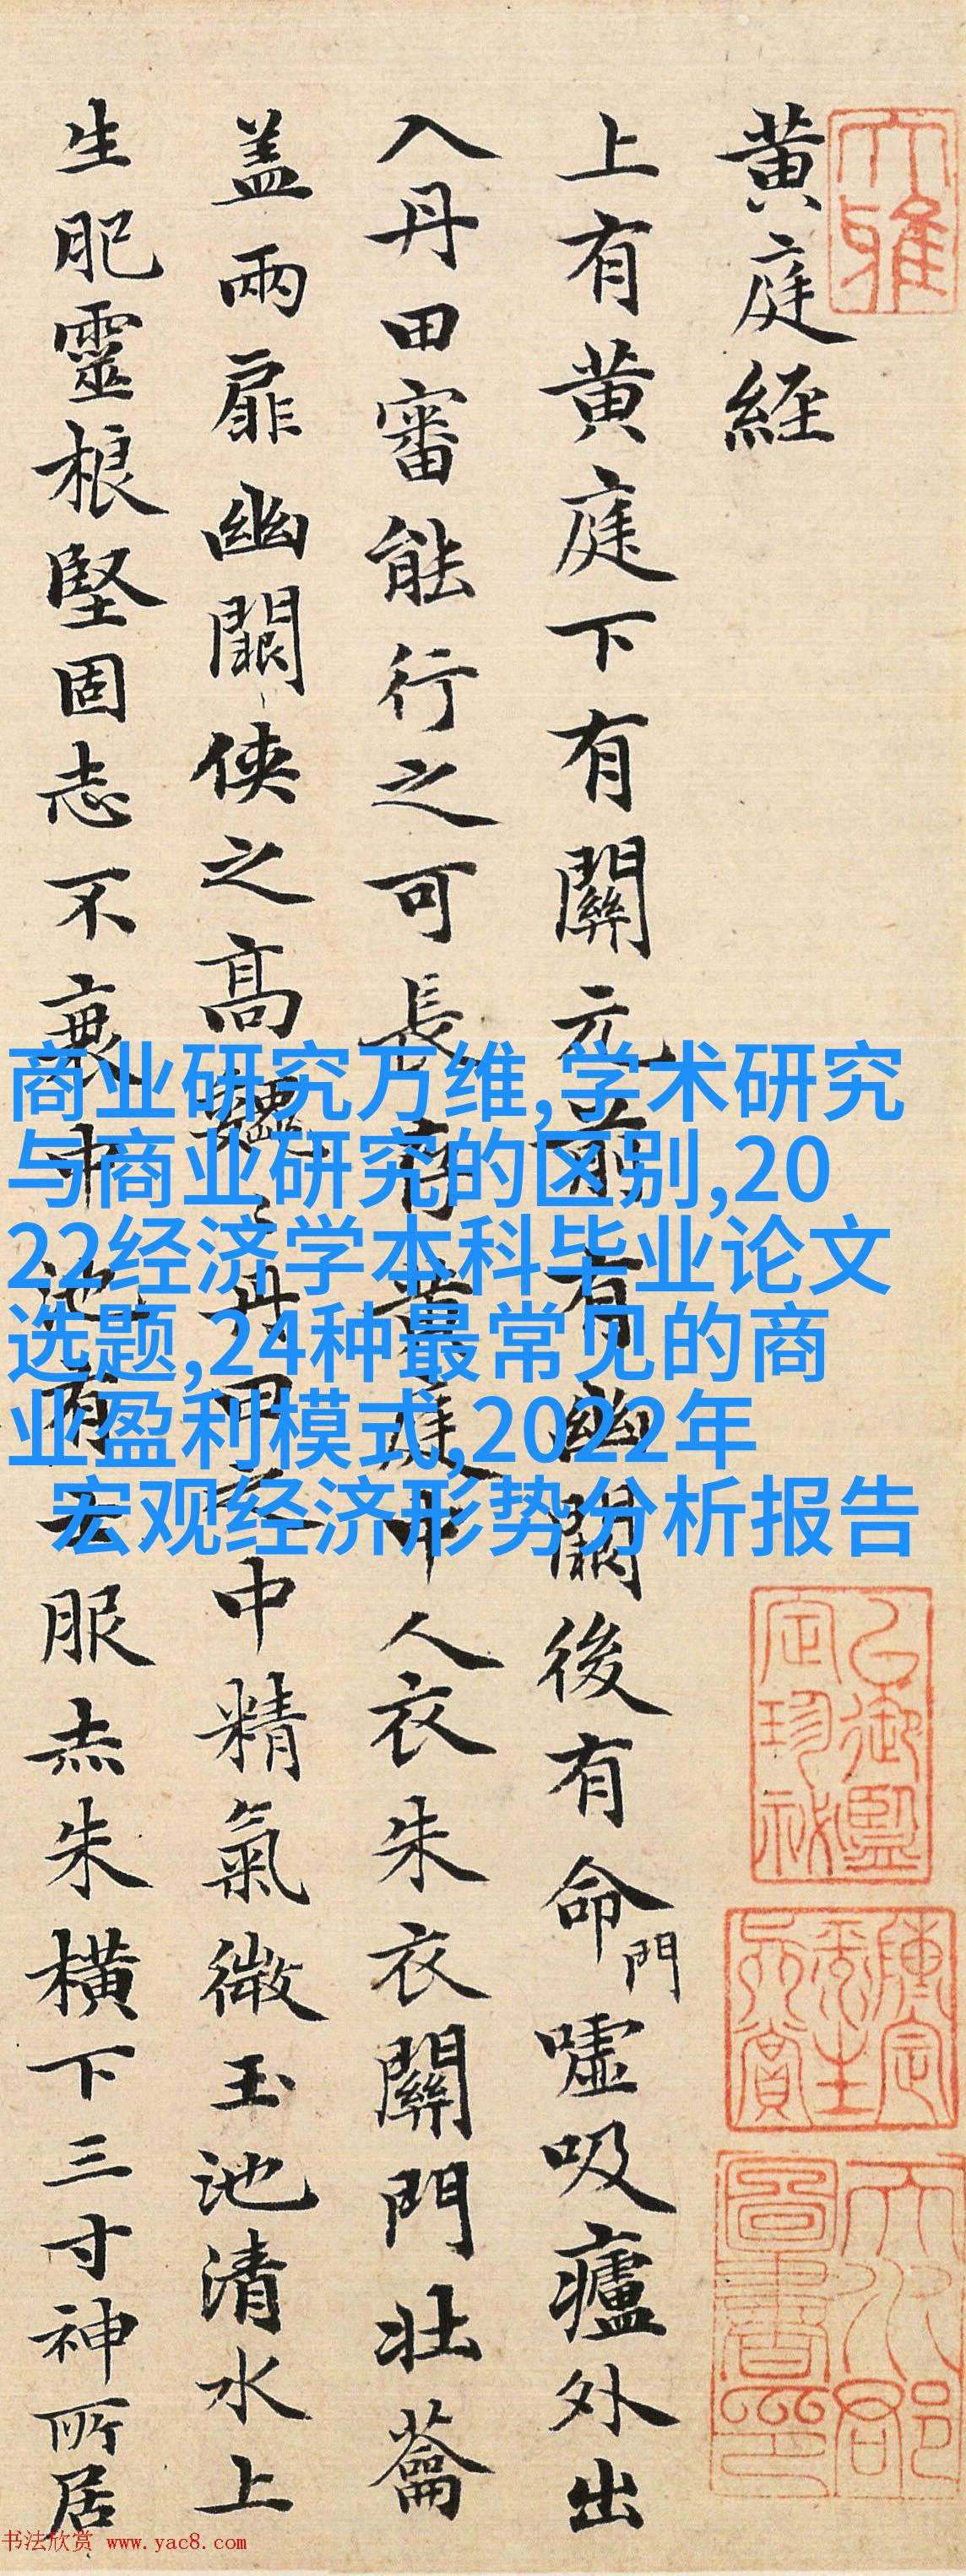 黄庭經
上有黄庭下有關元前有幽闕後有命門嘘吸廬外出
入丹田審能行之可長存黄庭中人衣朱衣關門壮蘥
盖兩扉幽闕侠之高巍巍丹田之中精氣微玉池清水上
生肥靈根堅固志不衰中池有士服赤朱横下三寸神所居
商业研究万维,学术研究
与商业研究的区别,20
22经济学本科毕业论文
选题,24种最常见的商
业盈利模式,2022年
宏观经济形势分析报告
大雅
乙御
书法欣赏 www.yac8.com